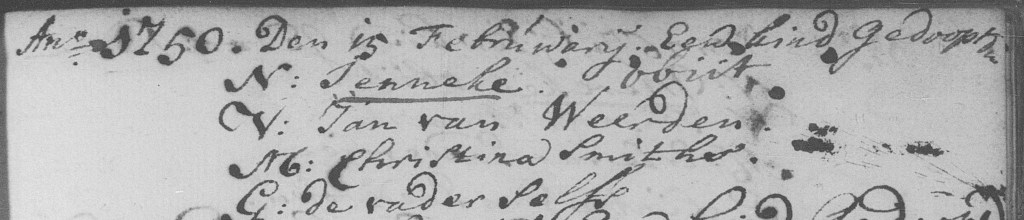 Ano 1750. Den 15 Februwary. Een kind Gedoopt
N: Jenneke. obiit
V: Jan van Weerden.
M: Christina Smiths.
G: de vader selfs